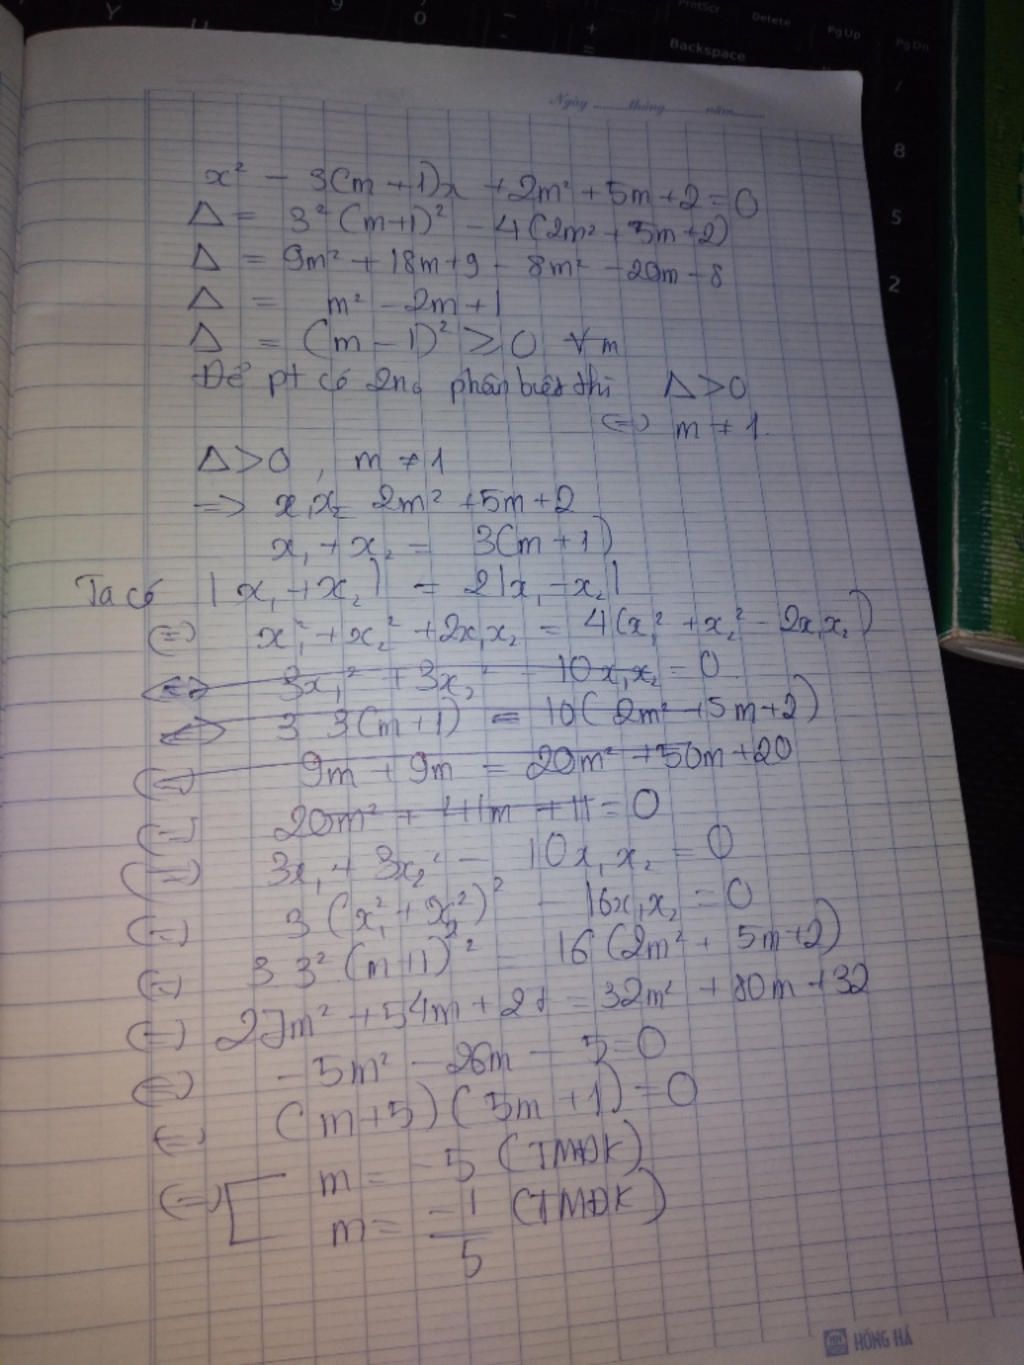 PrntScr
Delete
PgUp
PgDn
Backspace
Y
9
0
8
5
2
Ngày tháng năm
x² - 3(m+1)x + 2m² + 5m + 2 = 0
Δ = 3²(m+1)² - 4(2m² + 5m + 2)
Δ = 9m² + 18m + 9 - 8m² - 20m - 8
Δ = m² - 2m + 1
Δ = (m - 1)² ≥ 0 ∀m
Để pt có 2ng phân biệt thì Δ > 0
<=> m ≠ 1.
Δ > 0, m ≠ 1
=> x₁x₂ = 2m² + 5m + 2
x₁ + x₂ = 3(m + 1)
Ta có |x₁ + x₂| = 2|x₁ - x₂|
<=> x₁² + x₂² + 2x₁x₂ = 4(x₁² + x₂² - 2x₁x₂)
<=> 3x₁² + 3x₂² - 10x₁x₂ = 0
<=> 3 3(m+1) = 10(2m² + 5m + 2)
<=> 9m + 9m = 20m² + 50m + 20
<=> 20m² + 41m + 11 = 0
<=> 3x₁ + 3x₂² - 10x₁x₂ = 0
<=> 3(x₁² + x₂²)² - 16x₁x₂ = 0
<=> 3 3²(m+1)² = 16(2m² + 5m + 2)
<=> 27m² + 54m + 27 = 32m² + 80m + 32
<=> -5m² - 26m - 5 = 0
<=> (m+5)(5m+1) = 0
<=> [ m = -5 (TMĐK)
m = -1/5 (TMĐK)
HỒNG HÀ